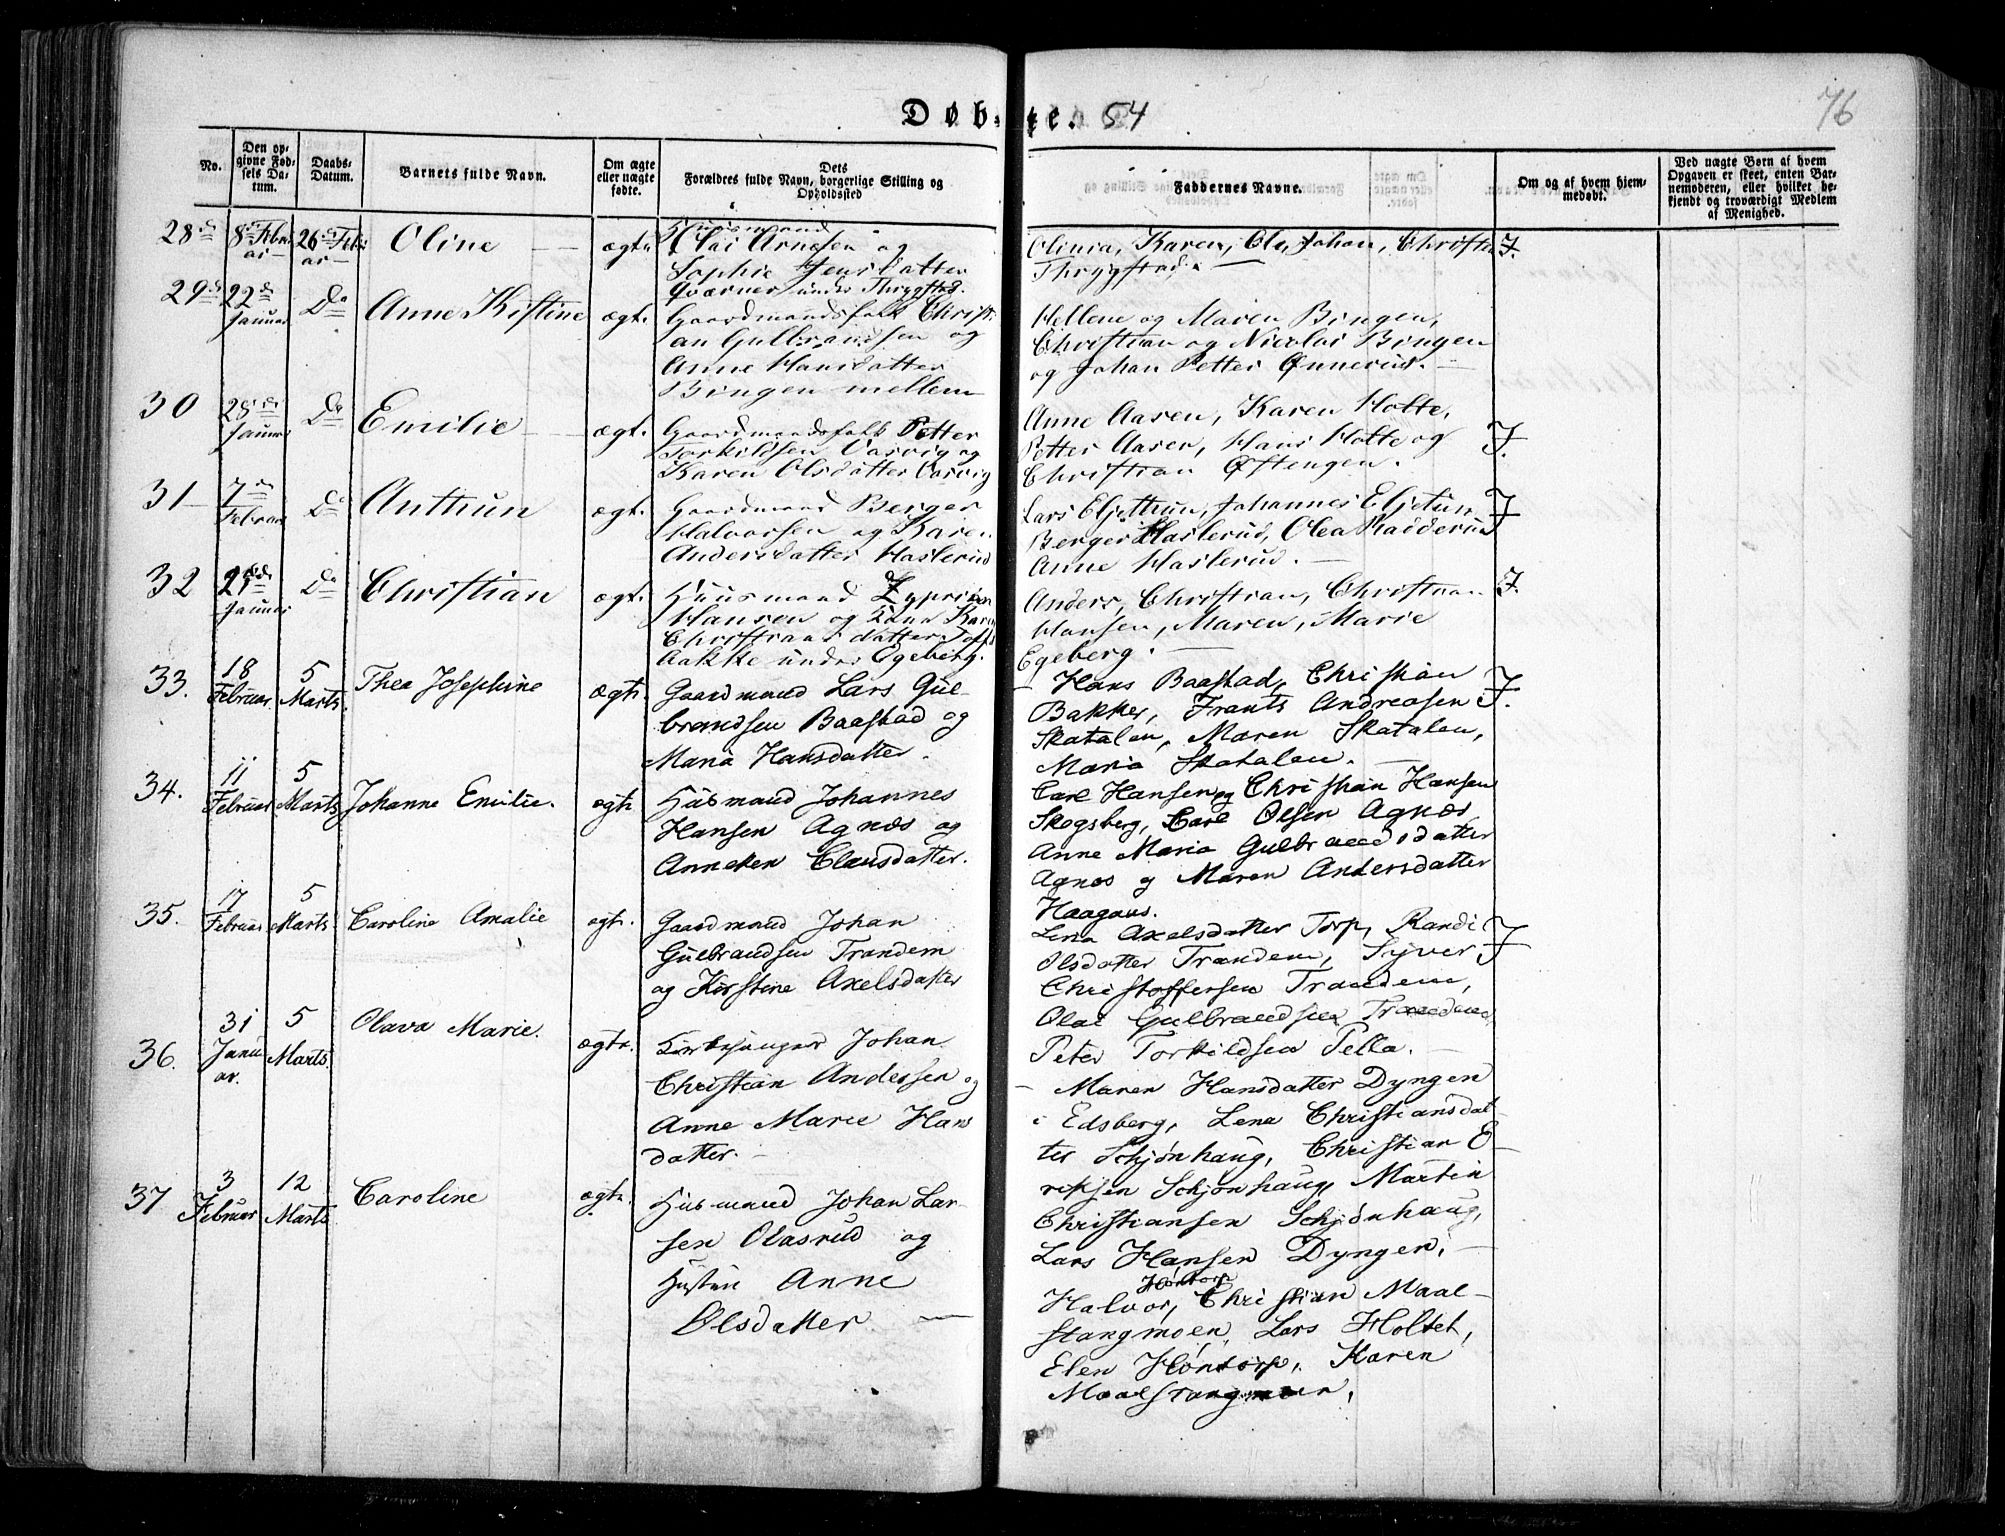 Døbte. 54
76
No.
Den opgivne Fødsels Datum.
Daabs-Datum.
Barnets fulde Navn.
Om ægte eller uægte fødte.
Dets Forældres fulde Navn, borgerlige Stilling og Opholdssted
Faddernes Navne.
Om og af hvem hjemmedøbt.
Ved uægte Børn af hvem Opgaven er skeet, enten Barnemoderen, eller hvilket bekjendt og troværdigt Medlem af Menighed.
28de 8de Februar 26de Februar Oline ægte
Huusmand
Olai Arnesen og
Sophie Jensdatter
Qværner under Thrygstad.
Karen, Ole, Johan, Christian
Thrygstad.
J.
29de 22de Januar Do Anne Kistine ægt.
Gaardmandsfolk Christi
an Gulbrandsen og
Anne Hansdatter
Bingen mellem
Hellene og Maren Bingen,
Christian og Nicolai Bingen
og Johan Petter Önnerud.
30 28de Januar Do Emilie ægt.
Gaardmandsfolk Petter
Torkildsen Varvig og
Karen Olsdatter Varvig
Anne Aasen, Karen Holte,
Petter Aasen, Hans Holte og
Christian Øftengen.
J.
31 7de Februar Do Anthun ægt.
Gaardmand Berger
Halvorsen og Karen
Andersdatter Haslerud
Lars Eljettun, Johannes Eljetun
Berger Haslerud, Olea Radderud
Anne Haslerud.
J
32 Januar Do Christian ægt.
Huusmand Zyprian
Hansen og Karen
Christiansdatter
Aakke under Egeberg.
Anders, Christian, Christian
Hansen, Maren, Marie
Egeberg.
J.
33. 18 Februar 5 Marts Thea Josephine ægte.
Gaardmand Lars Gul-
brandsen Baastad og
Maria Hansdatter.
Hans Baastad, Christian
Bakker, Frants Andreasen
Skatalen, Maren Skatalen,
Maria Skatalen.
J.
34. 11 Februar 5 Marts Johanne Emilie. ægte
Husmand Johannes
Hansen Agnæs og
Anneken Clausdatter.
Carl Hansen og Christian Hansen
Skogsberg, Carl Olsen Agnæs,
Anne Maria Gulbrandsdatter
Agnæs og Maren Andersdatter
Haagaas.
35. 17 Februar 5 Marts Caroline Amalie ægte.
Gaardmand Johan
Gulbrandsen Trandem
og Kirstine Axelsdatter
Lena Axelsdatter Torp, Randi
Olsdatter Trandem, Syver
Christoffersen Trandem,
Olai Gulbrandsen Trandem,
Peter Torkildsen Tella.
J
36. 31 Januar. 5 Marts. Olava Marie. ægte.
Kirkesanger Johan
Christian Andersen og
Anne Marie Hans
datter.
Maren Hansdatter Dyngen
i Edsberg, Lena Christiansdat-
ter Schjønhaug, Christian E-
riksen Schjønhaug, Martin
Christiansen Schjønhaug,
Lars Hansen Dyngen.
37 3 Februar 12 Marts Caroline ægte.
Husmand Johan Lar-
sen Olasrud og
Hustru Anne
Olsdatter
Höntorp
Halvor, Christian Maal-
stangmoen, Lars Holtet,
Elen Höntorp, Karen
Maalstangmoen.